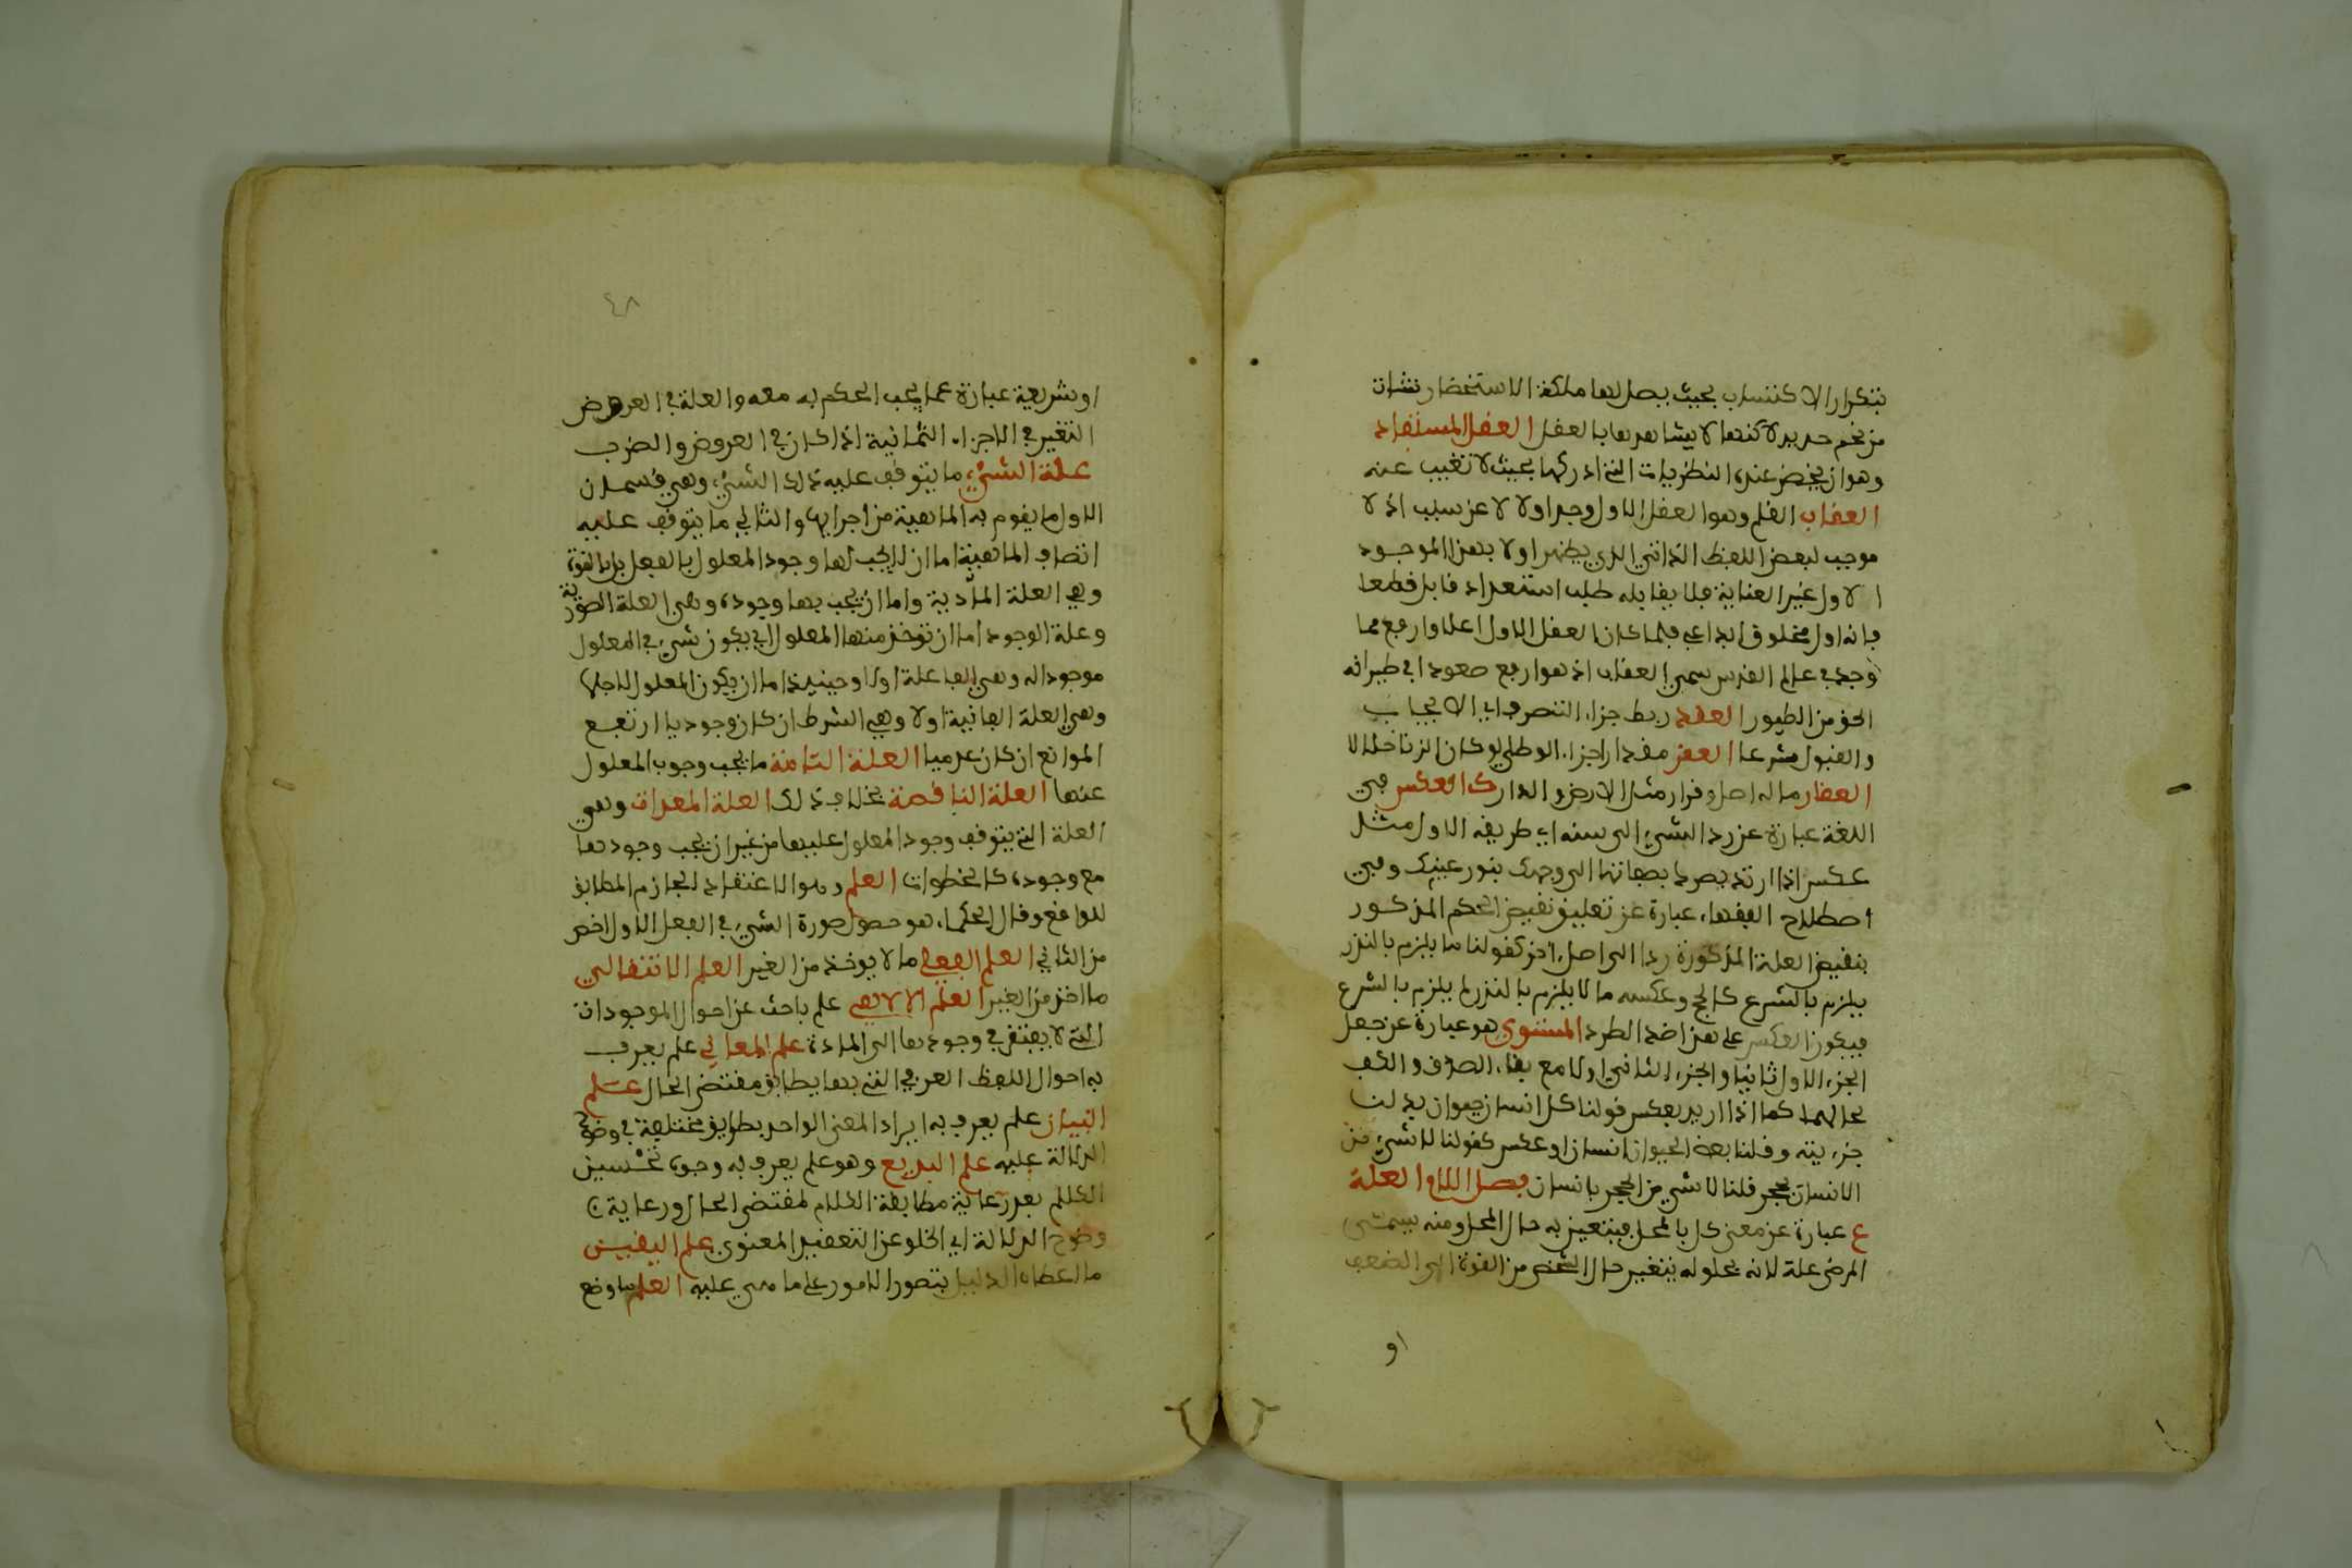 بتكرار الاكتساب بحيث يحصل لها ملكة الاستحضار متى شات
من تجشم جديد لاكنها لا يشاهدها بالعفل العفل المستفاد
وهو ان يحضر عنده النظريات التي ادركها بحيث لا تغيب عنه
العفاب الفلم وهو العفل الاول وجد اولا لا عن سبب اذ لا
موجب لبعض اللفظ الذاتي الذي يظهر اولا بهذا الموجود
الاول غير العناية فلا يفابله طلب استعداد فابل فطعا
فانه اول مخلوق ابداعي فلما كان العفل الاول اعلا وارفع مما
وجد في عالم الفدس سمي العفاب اذ هو ارفع صعودا في طيرانه
الجو من الطيور العفد ربط جزاء التصرف اي الايجاب
والفبول شرعا العفر مفدار اجزاء الوطي لو كان الزنا حلالا
العفار ما له اصل وفرار مثل الارض والدار ك العكس في
اللغة عبارة عن رد الشيء الى سننه اي طريفه الاول مثل
عكس اذا ارتد بصرك بصفائها الى وجهك بنور عينك وفي
اصطلاح الففهاء عبارة عن تعليق نفيض الحكم المذكور
بنفيض العلة المذكورة ردا الى اصل اخر كفولنا ما يلزم بالنذر
يلزم بالشرع كالحج وعكسه ما لا يلزم بالنذر لم يلزم بالشرع
فيكون العكس على هذا ضد الطرد المستوي هو عبارة عن جعل
الجزء الاول ثانيا والجزء الثاني اولا مع بفاء الصدق والكيف
بحالهما كما اذا اريد بعكس فولنا كل انسان حيوان بدلنا
جزءيته وفلنا بعض الحيوان انسان او عكس كفولنا لا شيء من
الانسان بحجر فلنا لا شيء من الحجر بانسان فصل اللام العلة
ع عبارة عن معنى كل بالمحل فيتغير به حال المحل ومنه يسمى
المرض علة لانه بحلوله يتغير حال الشخص من الفوة الى الضعف
او
٤٨
او شريعة عبارة عما يجب الحكم به معه والعلة في العروض
التغير في الاجزاء الثمانية اذا كان في العروض والضرب
علة الشيء ما يتوفف عليه ذلك الشيء وهي فسمان
الاول ما يفوم به الماهية من اجزايها والثاني ما يتوفف عليه
اتصاف الماهية اما ان لا يجب لها وجود المعلول بالفعل بل بالفوة
وهي العلة المادية واما ان يجب بها وجوده وهي العلة الصورية
وعلة الوجود اما ان توخذ منها المعلول اي يكون شيء في المعلول
موجودا له وهي الفاعلة اولا وحينيذ اما ان يكون المعلول لاجلها
وهي العلة الغائية اولا وهي الشرط ان كان وجوديا ارتفع
الموانع ان كان عدميا العلة التامة ما يجب وجوب المعلول
عنها العلة النافصة بخلاف ذلك العلة المعدات وهي
العلة التي يتوفف وجود المعلول عليها من غير ان يجب وجودها
مع وجوده كالخطوات العلم وهو الاعتفاد الجازم المطابق
للوافع وفال الحكماء هو حصول صورة الشيء في العفل الاول اخص
من الثاني العلم الفعلي ما لا يوخذ من الغير العلم الانتفالي
ما اخذ من الغير العلم الالاهي علم باحث عن احوال الموجودات
التي لا يفتفر في وجودها الى المادة علم المعاني علم يعرف
به احوال اللفظ العربي التي بها يطابق مفتضى الحال علم
البيان علم يعرف به ايراد المعنى الواحد بطرايق مختلفة في وضوح
الدلالة عليه علم البديع وهو علم يعرف به وجوه تحسين
الكلام بعد رعاية مطابفة الكلام لمفتضى الحال ورعاية
وضوح الدلالة اي الخلو عن التعفيد المعنوي علم اليفين
ما اعطاه الدليل بتصور الامور على ما هي عليه العلم ما وضع